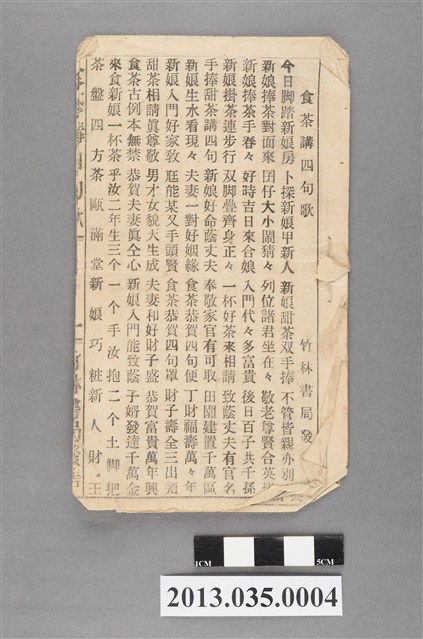 食茶講四句歌 竹林書局發
今日脚踏新娘房 卜探新娘甲新人 新娘甜茶双手捧 不管皆親亦別
新娘捧茶對面來 囝仔大小鬧猜々 列位諸君坐在々 敬老尊賢合英
新娘捧茶手春々 好時吉日來合娘 入門代々多富貴 後日百子共千孫
新娘掛茶連步行 双脚疊齊身正々 一杯好茶來相請 致蔭丈夫有官名
手捧甜茶講四句 新娘好命蔭丈夫 奉敬家官有可取 田園建置千萬區
新娘生水看現々 夫妻一對好姻緣 食茶恭賀四句便 丁財福壽萬々年
新娘入門好家教 才能某又手頭賢 食茶恭賀四句罩 財子壽全三出
甜茶相請眞尊敬 男才女貌天生成 夫妻和好財子盛 恭賀富貴萬年興
食茶古例本無禁 恭賀夫妻眞仝心 新娘入門能致蔭 子婿發達千萬金
來食新娘一杯茶 乎汝二年生三个 一个手汝抱 二个土脚把
茶盤四方茶甌滿堂 新娘巧粧新人財王
1CM 5CM
2013.035.0004